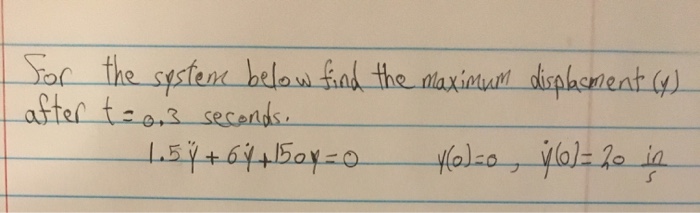 For the system below find the maximum displacment (y)
after t=0.3 seconds.
1.5ÿ+6ẏ+150y=0 y(0)=0, ẏ(0)=20 in/s